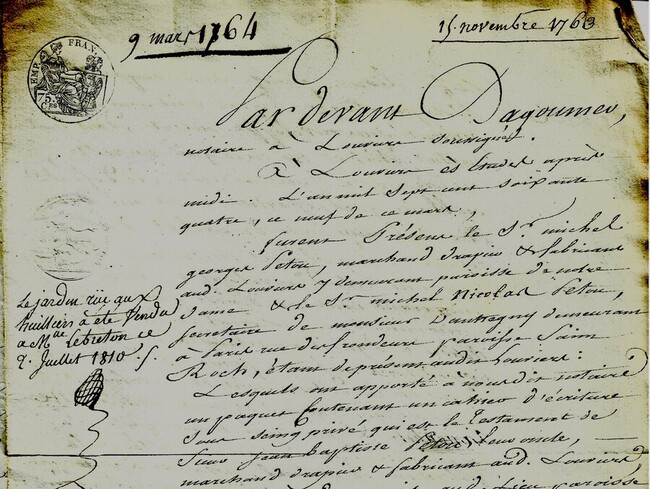 9 mars 1764
15. novembre 1763
EMP. FRAN.
Par devant Dagoumer,
notaire à Louviers soussigné.
à Louviers ès Etudes après
midi. L'an mil sept cent soixante
quatre, ce neuf de ce mars,
furent Présens le Sr. michel
georges Petou, marchand drapier & fabricant
aud. Louviers y demeurant paroisse de notre
Dame & le Sr. michel Nicolas Petou,
secretaire de monsieur Dautregny demeurant
à Paris rue des frondeurs paroisse Saint
Roch, étant de présent audit Louviers:
Lesquels ont apporté à nous dit notaire
un paquet contenant un cahier d'écriture
sous seing privé qui est le Testament de
Sieur Jean Baptiste Petou leur oncle,
marchand drapier & fabricant aud. Louviers,
Lieu paroisse
Le jardin rüe aux
huilliers à été vendu
à Mme Lebreton ce
2. Juillet 1810